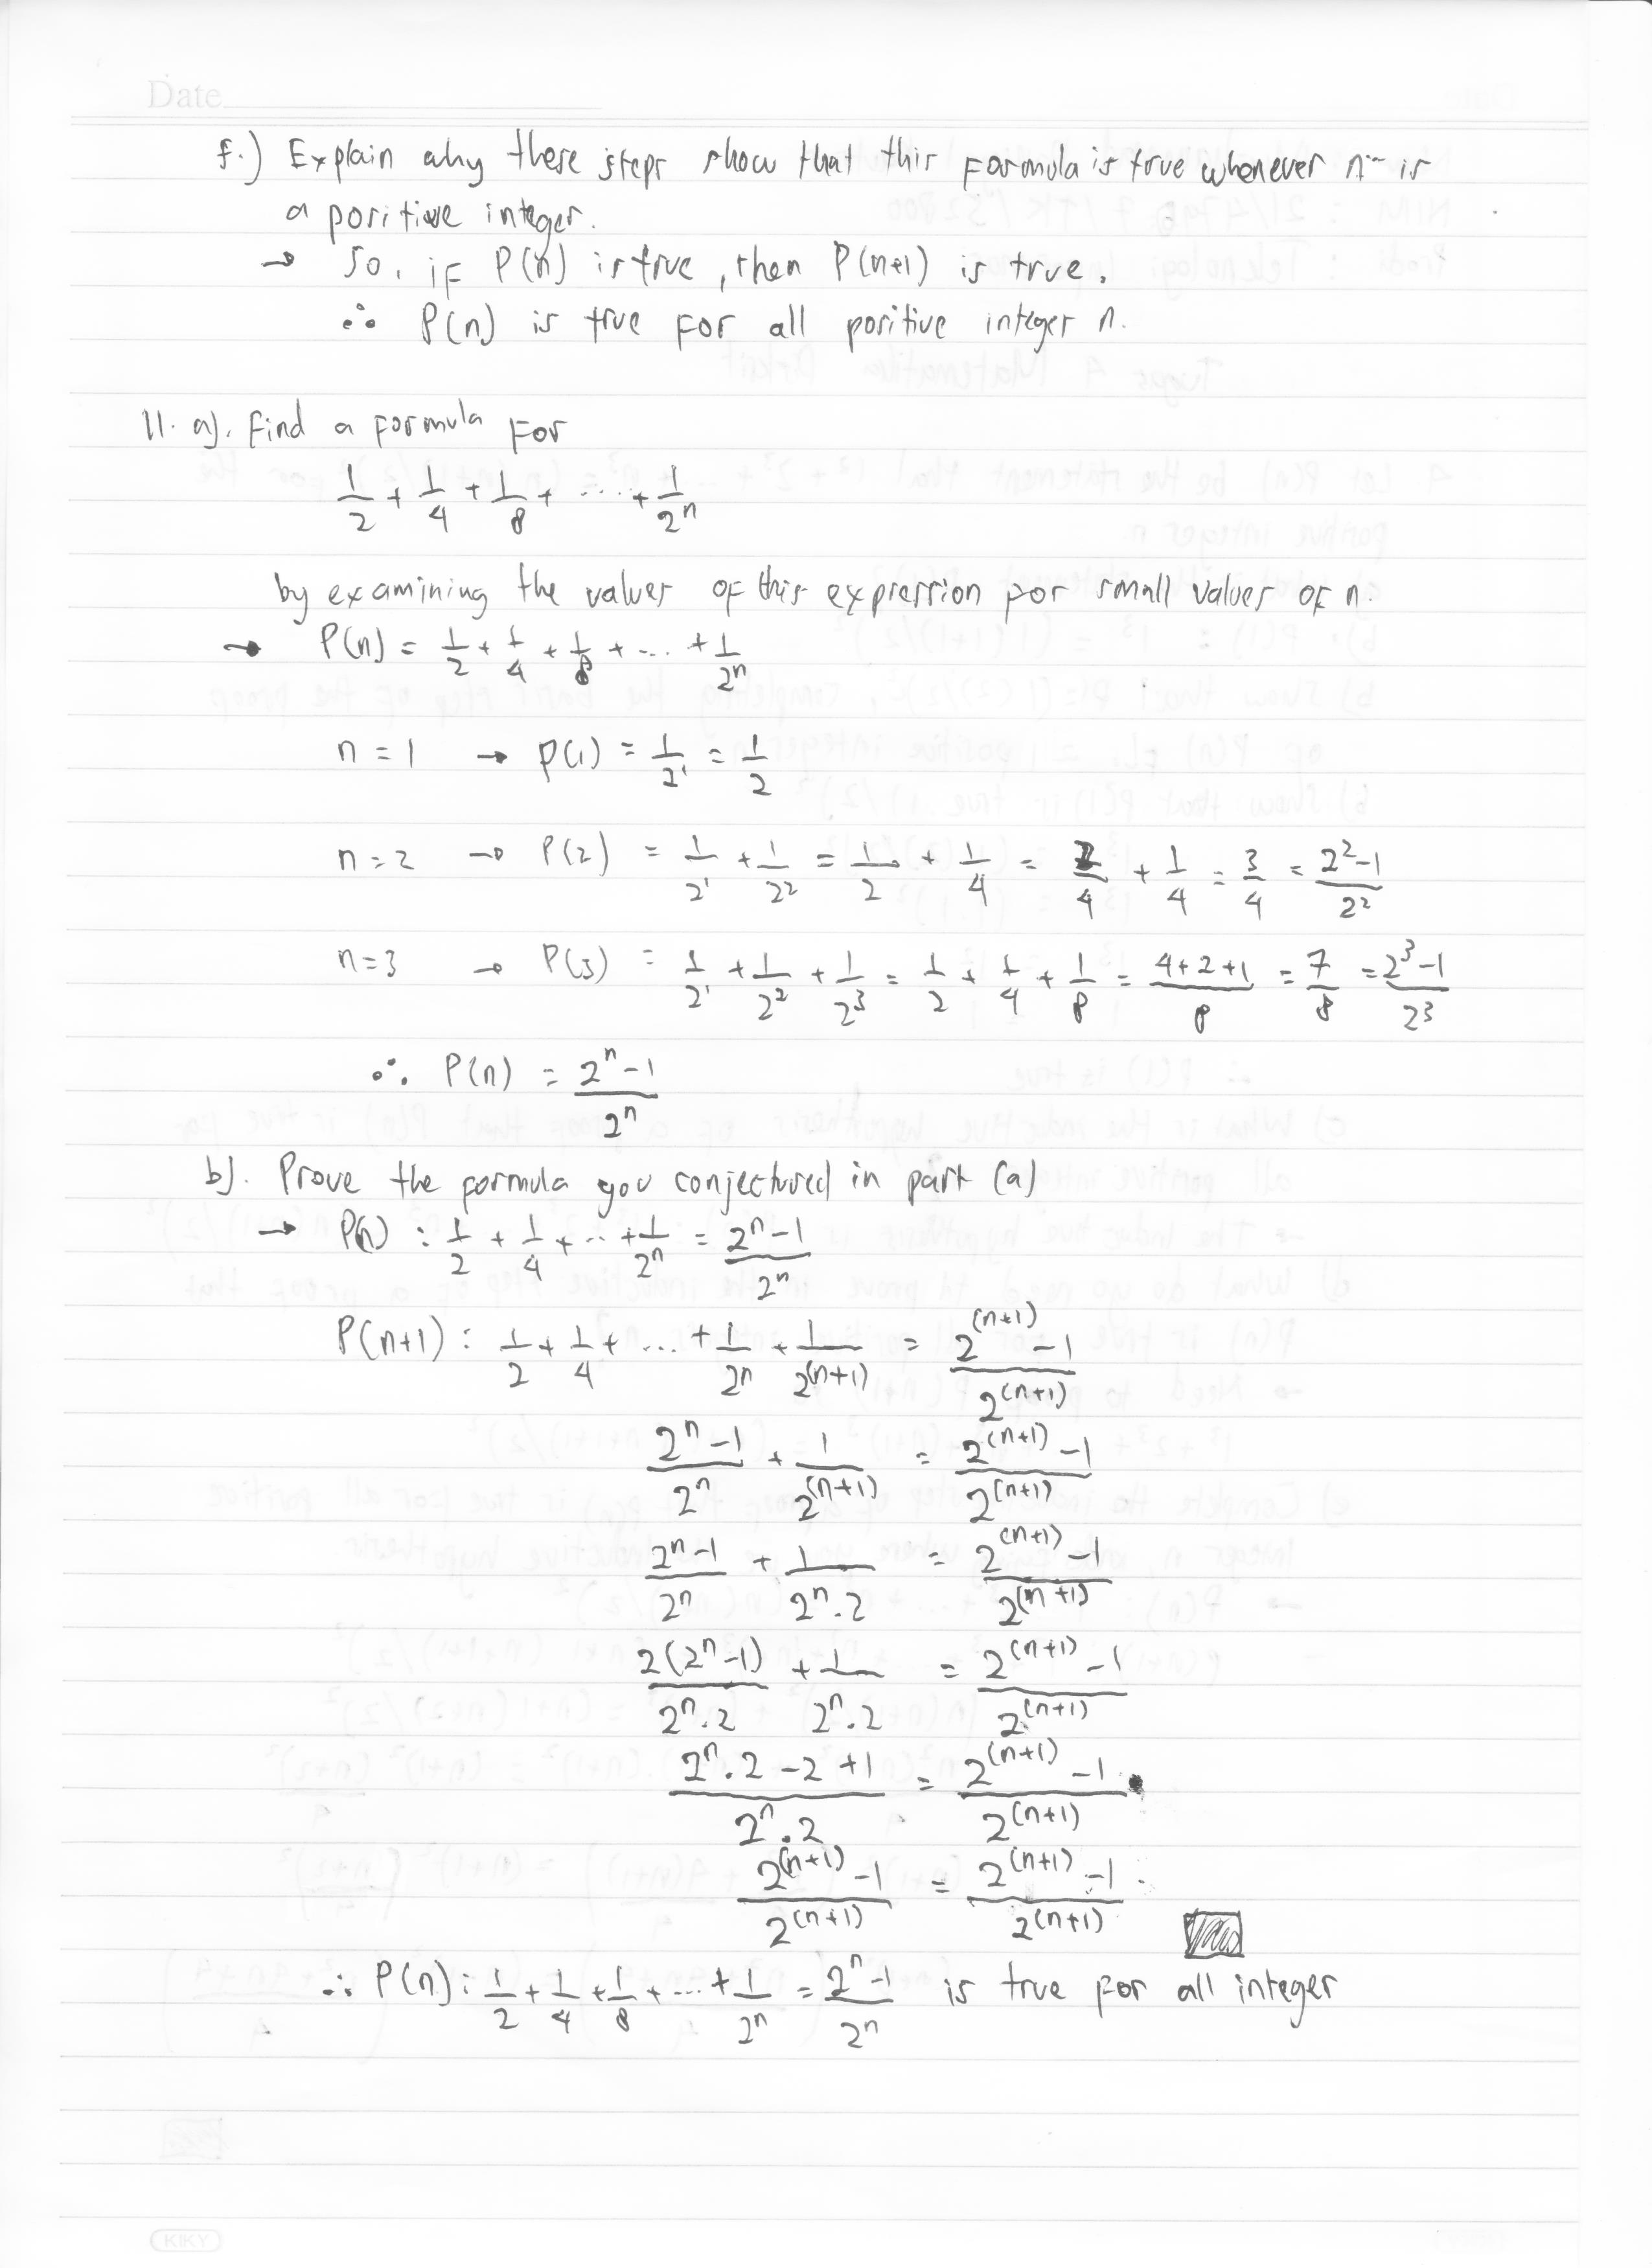 Date
f.) Explain why these steps show that this formula is true whenever n is
a positive integer.
→ So, if P(n) is true, then P(n+1) is true.
∴ P(n) is true for all positive integer n.
11. a). Find a formula for
1/2 + 1/4 + 1/8 + ... + 1/2^n
by examining the values of this expression for small values of n.
→ P(n) = 1/2 + 1/4 + 1/8 + ... + 1/2^n
n = 1 → P(1) = 1/2^1 = 1/2
n = 2 → P(2) = 1/2^1 + 1/2^2 = 1/2 + 1/4 = 2/4 + 1/4 = 3/4 = (2^2-1)/2^2
n = 3 → P(3) = 1/2^1 + 1/2^2 + 1/2^3 = 1/2 + 1/4 + 1/8 = (4+2+1)/8 = 7/8 = (2^3-1)/2^3
∴ P(n) = (2^n-1)/2^n
b). Prove the formula you conjectured in part (a)
→ P(n) : 1/2 + 1/4 + ... + 1/2^n = (2^n-1)/2^n
P(n+1) : 1/2 + 1/4 + ... + 1/2^n + 1/2^(n+1) = (2^(n+1)-1)/2^(n+1)
(2^n-1)/2^n + 1/2^(n+1) = (2^(n+1)-1)/2^(n+1)
(2^n-1)/2^n + 1/(2^n.2) = (2^(n+1)-1)/2^(n+1)
2(2^n-1)/(2^n.2) + 1/(2^n.2) = (2^(n+1)-1)/2^(n+1)
(2^n.2-2+1)/(2^n.2) = (2^(n+1)-1)/2^(n+1)
(2^(n+1)-1)/2^(n+1) = (2^(n+1)-1)/2^(n+1)
∴ P(n) : 1/2 + 1/4 + 1/8 + ... + 1/2^n = (2^n-1)/2^n is true for all integer
KIKY